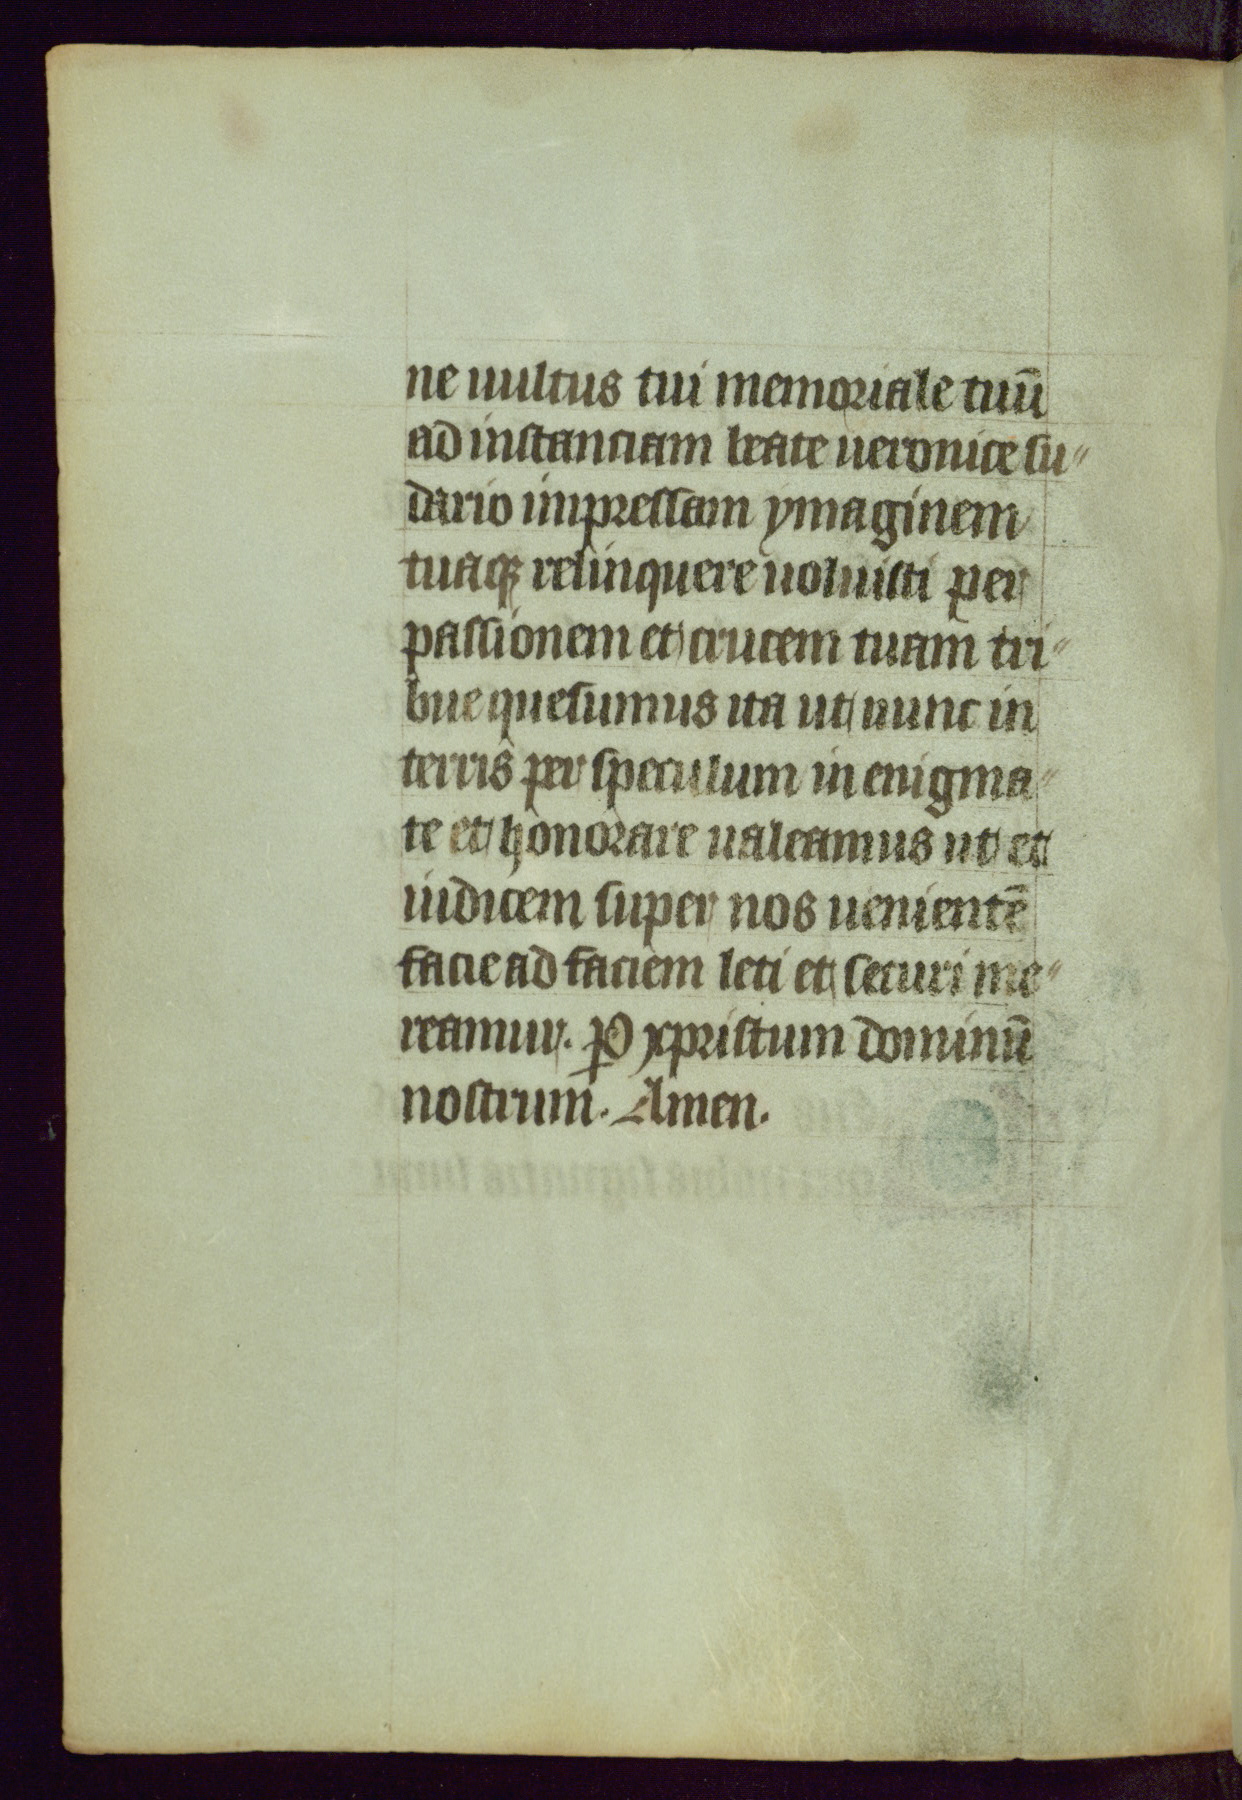 ne uultus tui memoriale tuū
ad instanciam beate ueronice su〃
dario impressam ymaginem
tuaqꝫ relinquere uoluisti per
passionem et crucem tuam tri〃
bue quesumus ita ut nunc in
terris per speculum in enigma〃
te et honorare ualeamus ut et
iudicem super nos uenientē
facie ad faciem leti et securi me〃
reamur. ꝑ xpristum dominū
nostrum. Amen.